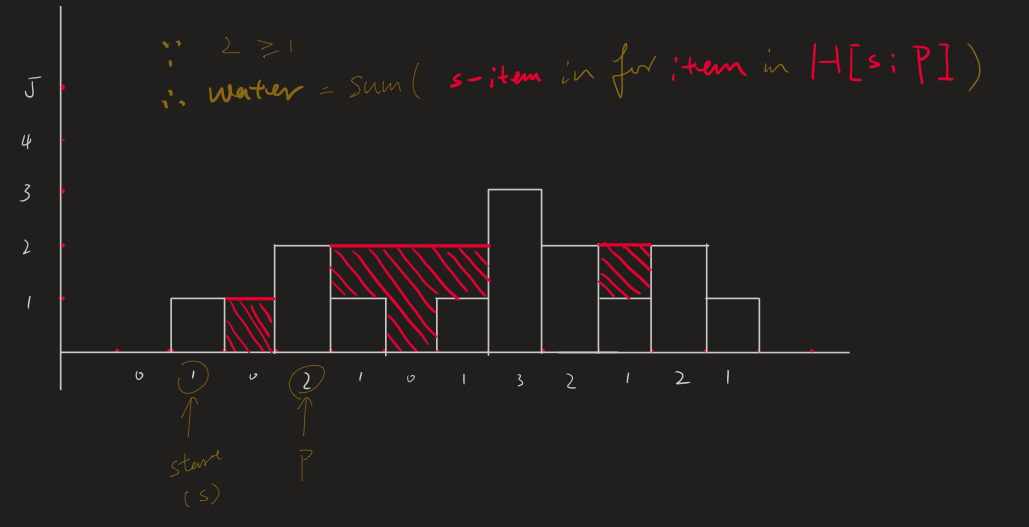 ∵ 2 ≥ 1
∴ water = sum( s-item in for item in H[s:P])
5
4
3
2
1
0 1 0 2 1 0 1 3 2 1 2 1
start P
(s)